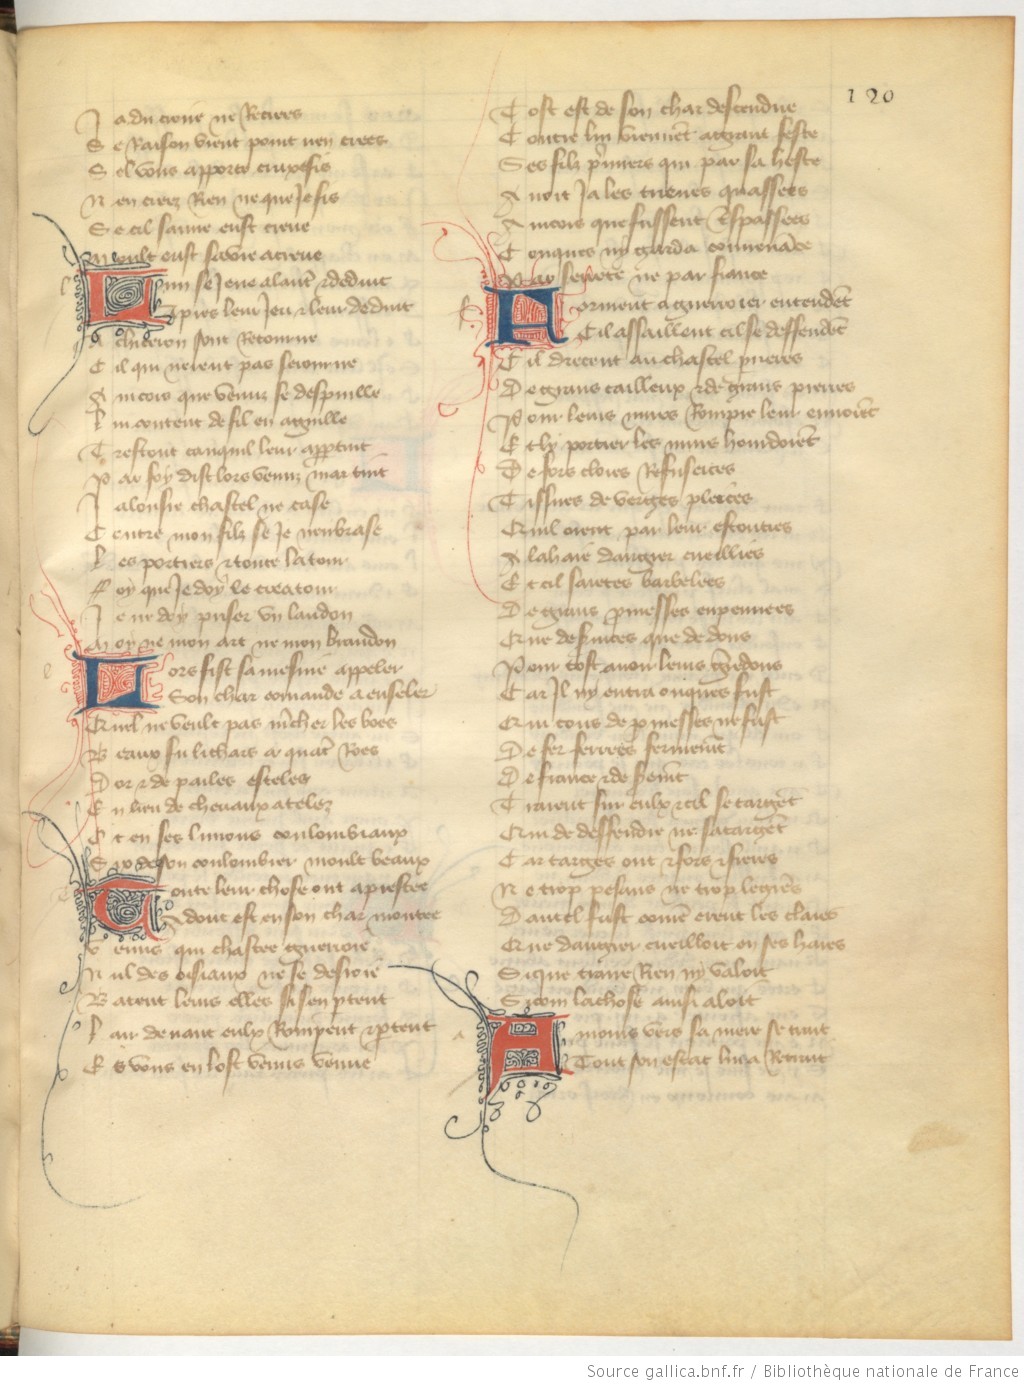 120
Ja du croire ne Recrees
Se Raison vient point nen crees
Sel vous apporte crucefis
Nen creez Ren ne que Je fis
Se cil sanne eust creue
Moult eust sa vie acreue
Ainsi se Jeue alait rdeduit
Apres leur Jeu r leur deduit
A chiteron sont Retourne
Cil qui nerent pas seiourne
Aincois que venuz se despuille
Lui content de fil en aguille
Trestout canquil leur appertint
Par foy dist lors venuz mar tint
Jalousie chastel ne case
Contre mon filz se Je nenbrase
Les portiers r toute la tour
Foy que Je doy le creatour
Je ne doy priser vn landon
Moy ne mon art ne mon brandon
Lors fist sa mesnie appeler
Son char comande a enseler
Quel ne veult pas mcher les boes
Beaux fu li chars a quatr Roes
Dor r de pailes esteles
En lieu de chevaux atelez
Et en ses limons coulombiaux
Six de son coulombier moult beaux
Toute leur chose ont aprestee
Adont est en son char montee
Venus qui chastee guerroie
Nul des oisiaux ne se desroie
Batent leurs elles si sen ptent
Lair deuant eulx Rompent r ptent
Es vous en lost venus venue
Tost est de son char descendue
Contre lui viennent a grant feste
Ses filz pmiers qui par sa heste
Auoit Ja les trieues quassees
Aincois que fussent tspassees
Conques ny garda conuenace
Par serrete ne par fiance
Forment a guerroier entendent
Cil assaillent cil se deffendent
Cil drecent au chastel prieres
De grans cailleux r de grans pierres
Pour leurs murs Rompre leur ennoient
Et ly portier les murs hourdoient
De fors cloies Refuseices
Tissues de verges pleices
Quil orent par leur estouties
A la haie dangier cueillies
Et cil saietes barbelees
De grans pmesses enpennees
Que de seruices que de dons
Pour tost auoir leurs guerdons
Car Il ny entra onques fust
Qui tous de pmesses ne fust
De fer ferrees ferment
De fiance r de serment
Traient sur eulx r cil se targent
Qui de deffendre ne satargent
Car targes ont r fors r fieres
Ne trop pesans ne trop legieres
Dautel fust come erent les claies
Que dangier cueilloit en ses haies
Si que traire Ren ny valoit
Si com la chose ainsi aloit
Amours vers sa mere se trait
Tout son estat lui a Retrait
Source gallica.bnf.fr / Bibliothèque nationale de France